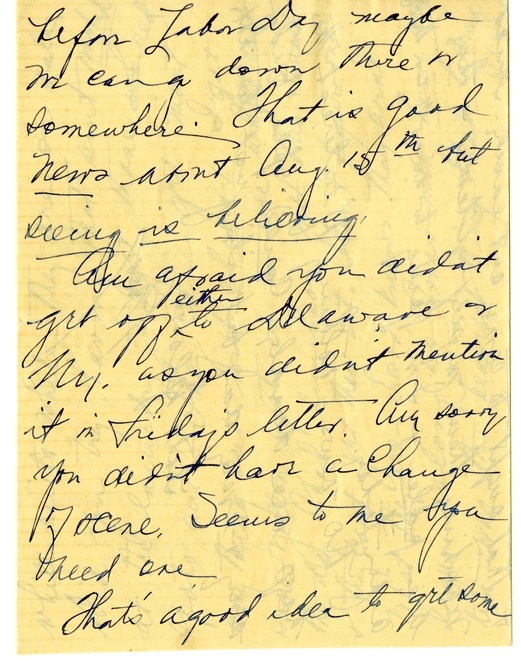 before Labor Day maybe
we can go down there or
somewhere. That is good
news about Aug. 15th but
seeing is believing.
Am afraid you didn't
get off either to Delaware or
N.Y. as you didn't mention
it in Friday's letter. Am sorry
you didn't have a change
of scene. Seems to me you
need one
That's a good idea to get some